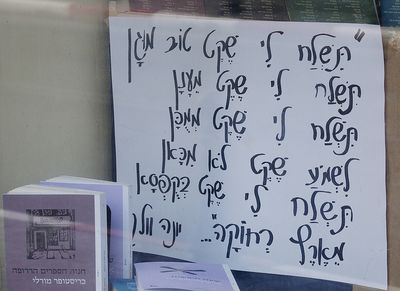 "תִּשְׁלַח לִי שֶׁקֶט טוֹב מוּגָן
תִּשְׁלַח לִי שֶׁקֶט מֵעָנָן
תִּשְׁלַח לִי שֶׁקֶט מְמֻכָּן
לִשְׁמֹעַ שֶׁקֶט לֹא מִכָּאן
תִּשְׁלַח לִי שֶׁקֶט בְּקֻפְסָאן
מֵאֶרֶץ רְחוֹקָה"... יונה וולך
חנות הספרים הרדופה
כריסטופר מורלי